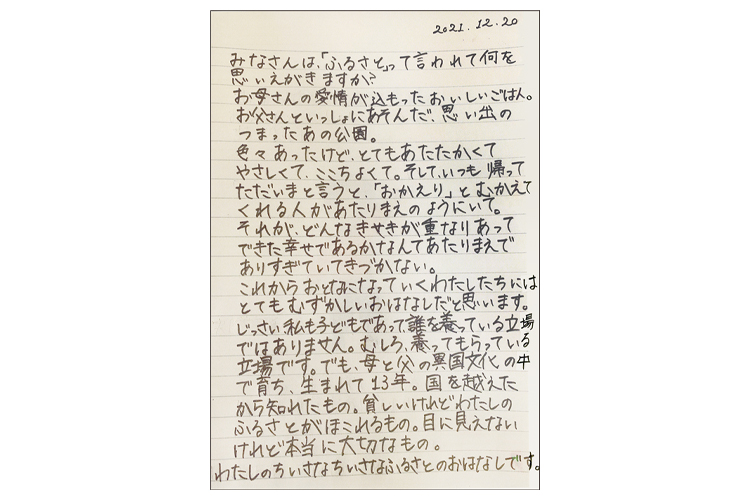 2021.12.20
みなさんは、「ふるさと」って言われて何を
思いえがきますか?
お母さんの愛情が込もったおいしいごはん。
お父さんといっしょにあそんだ、思い出の
つまったあの公園。
色々あったけど、とてもあたたかくて
やさしくて、ここちよくて。そして、いつも帰って
ただいまと言うと、「おかえり」とむかえて
くれる人があたりまえのようにいて。
それが、どんなきせきが重なりあって
できた幸せであるかなんてあたりまえで
ありすぎていてきづかない。
これからおとなになっていくわたしたちには
とてもむずかしいおはなしだと思います。
じっさい私も子どもであって、誰を養っている立場
ではありません。むしろ、養ってもらっている
立場です。でも、母と父の異国文化の中
で育ち、生まれて13年。国を越えた
から知れたもの。貧しいけれどわたしの
ふるさとがほこれるもの。目に見えない
けれど本当に大切なもの。
わたしのちいさなちいさなふるさとのおはなしです。